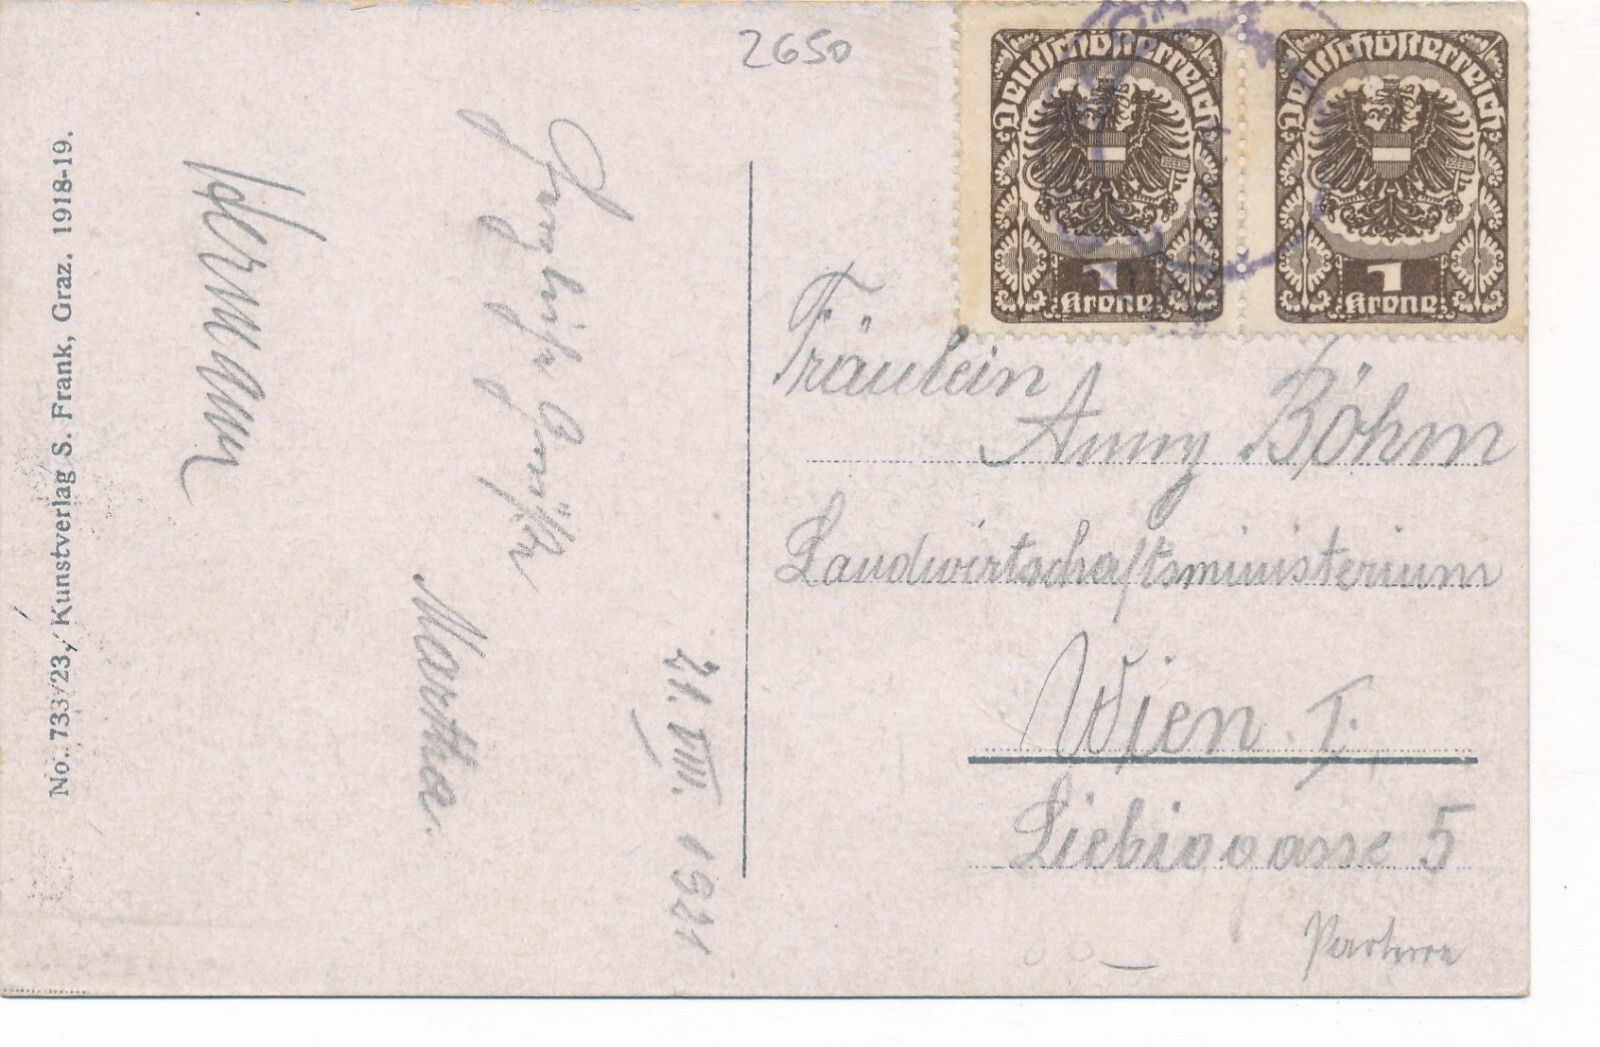 2650
Deutschösterreich
1
Krone
Deutschösterreich
1
Krone
Fräulein
Anny Böhm
Landwirtschaftsministerium
Wien I.
Liebiggasse 5
Parterre
21. VIII. 1921
Grüße
Martha.
Hermann
No. 733/23, Kunstverlag S. Frank, Graz. 1918-19.